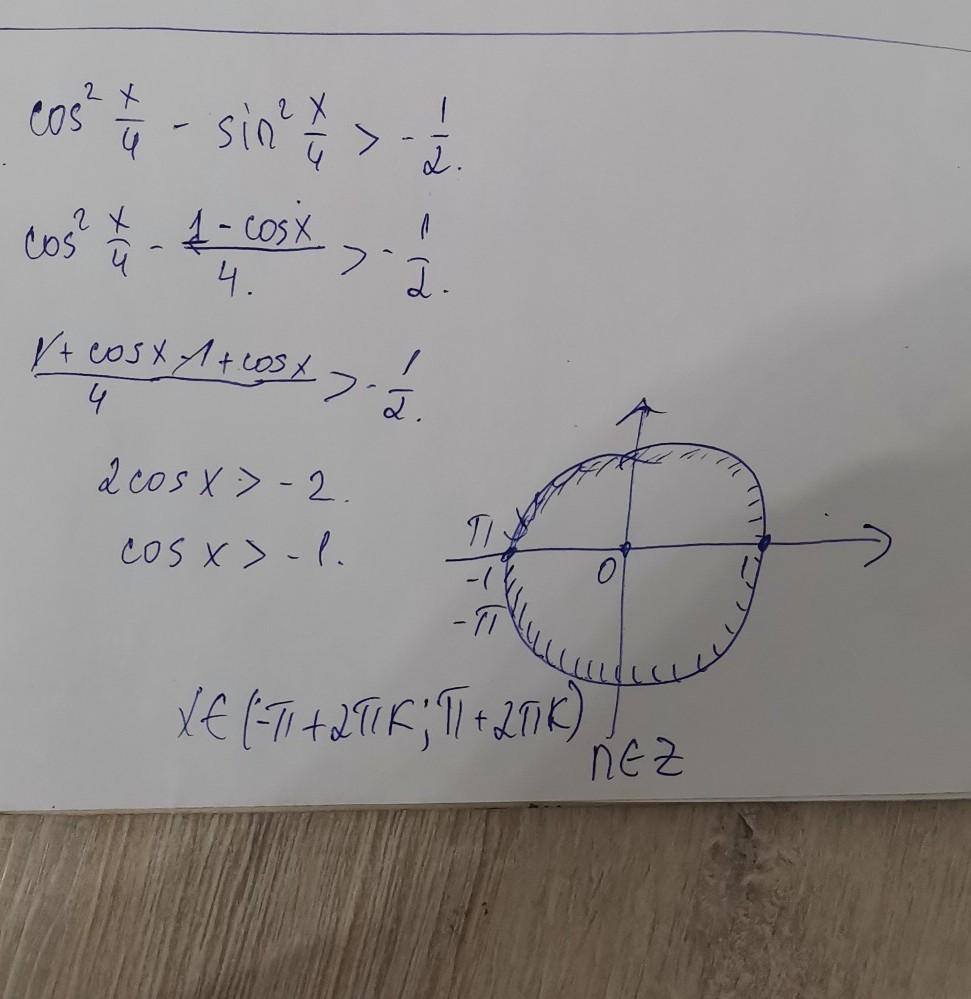 cos² x/4 - sin² x/4 > - 1/2.
cos² x/4 - (1 - cosx)/4. > - 1/2.
(1 + cosx - 1 + cosx)/4 > - 1/2.
2cosx > -2.
cosx > -1.
π
-1 0 1
-π
x∈(-π+2πk; π+2πk)
n∈Z